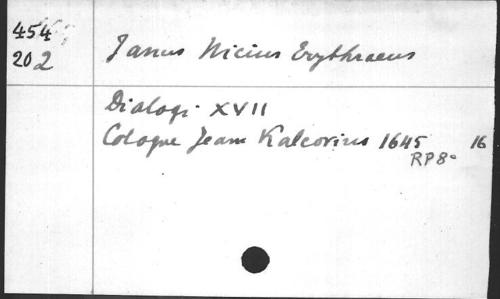 454
202
Janus Nicius Erythraeus
Dialogi XVII
Cologne Jean Kalcovius 1645 16
RP8°